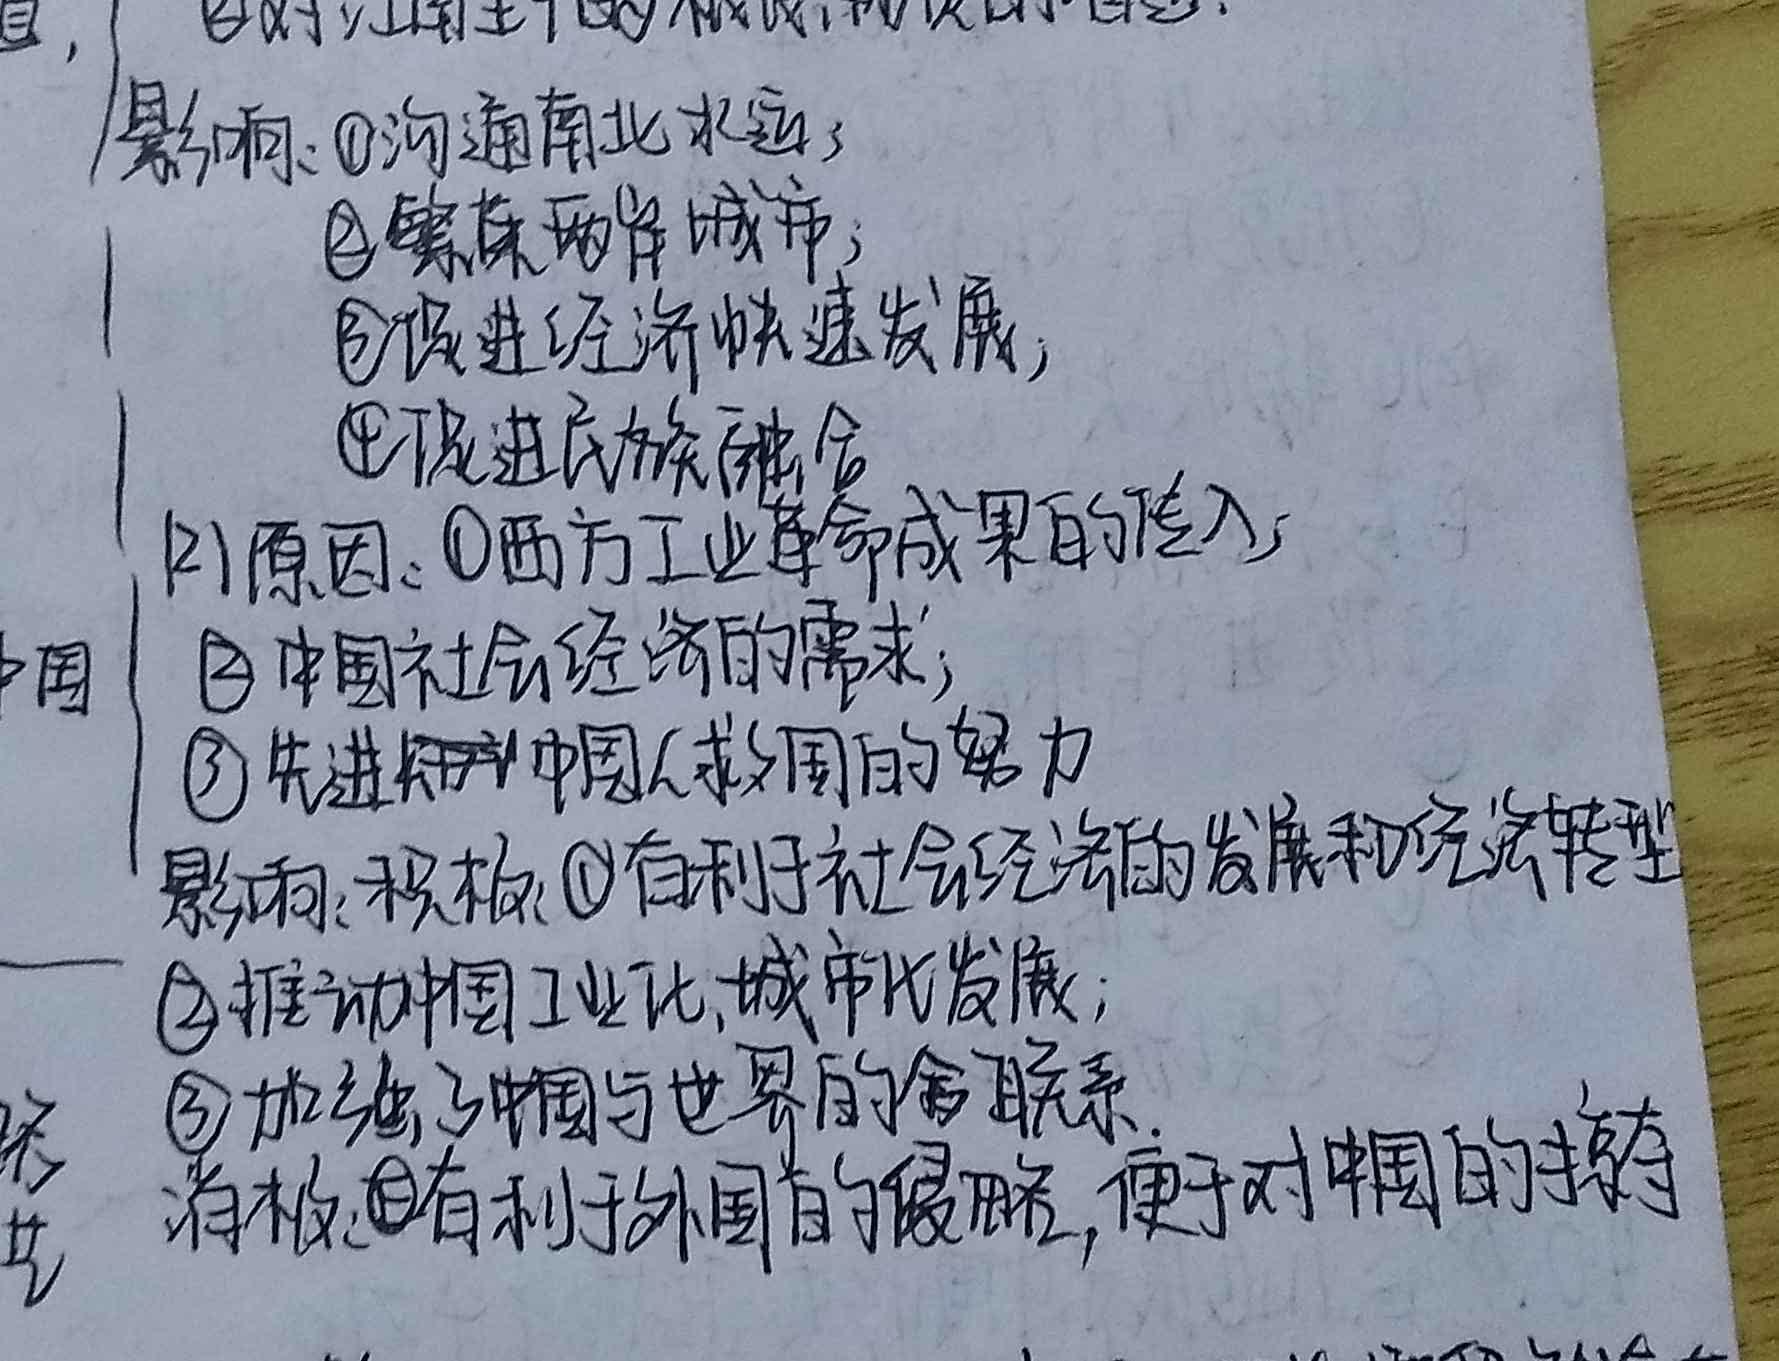 影响:①沟通南北水运;
②繁荣两岸城市;
③促进经济快速发展;
④促进民族融合
(2)原因:①西方工业革命成果的传入;
中国
②中国社会经济的需求;
③先进中国人救国的努力
影响:积极:①有利于社会经济的发展和经济转型
②推动中国工业化、城市化发展;
③加强了中国与世界的联系.
消极:①有利于外国的侵略,便于对中国的掠夺